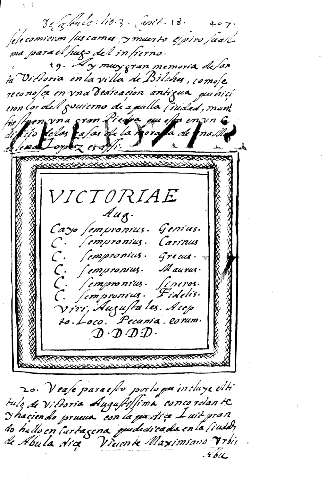 lib. 3. 18. 207.
se le comieron sus carnes, y muerto espiro su al-
ma para el fuego del infierno.
19. Ay muy gran memoria de san-
ta Victoria en la villa de Bilches, como se
reconosce en una dedicacion antigua que hici-
eron los del govierno de aquella ciudad,
en una gran Piedra que esta en un e-
dificio de las casas de la
Lopez
VICTORIAE
Aug.
Cayo sempronius. Genius.
C. sempronius. Carinus
C. sempronius. Grecus.
C. sempronius. Maurus.
C. sempronius. Sineros.
C. sempronius. Fidelis.
Viri, Augustales. Acep
to. Loco. Pecunia. eorum.
D. D. D. D.
20. Vease para esto por lo que incluye el ti-
tulo de Victoria Augustissima concordante
y haciendo prueva con la que dice Luitpran
do hallo en Cartagena que dedicada en la ciudad
de Abula dice Vicente Maximiano Urbis
Abu